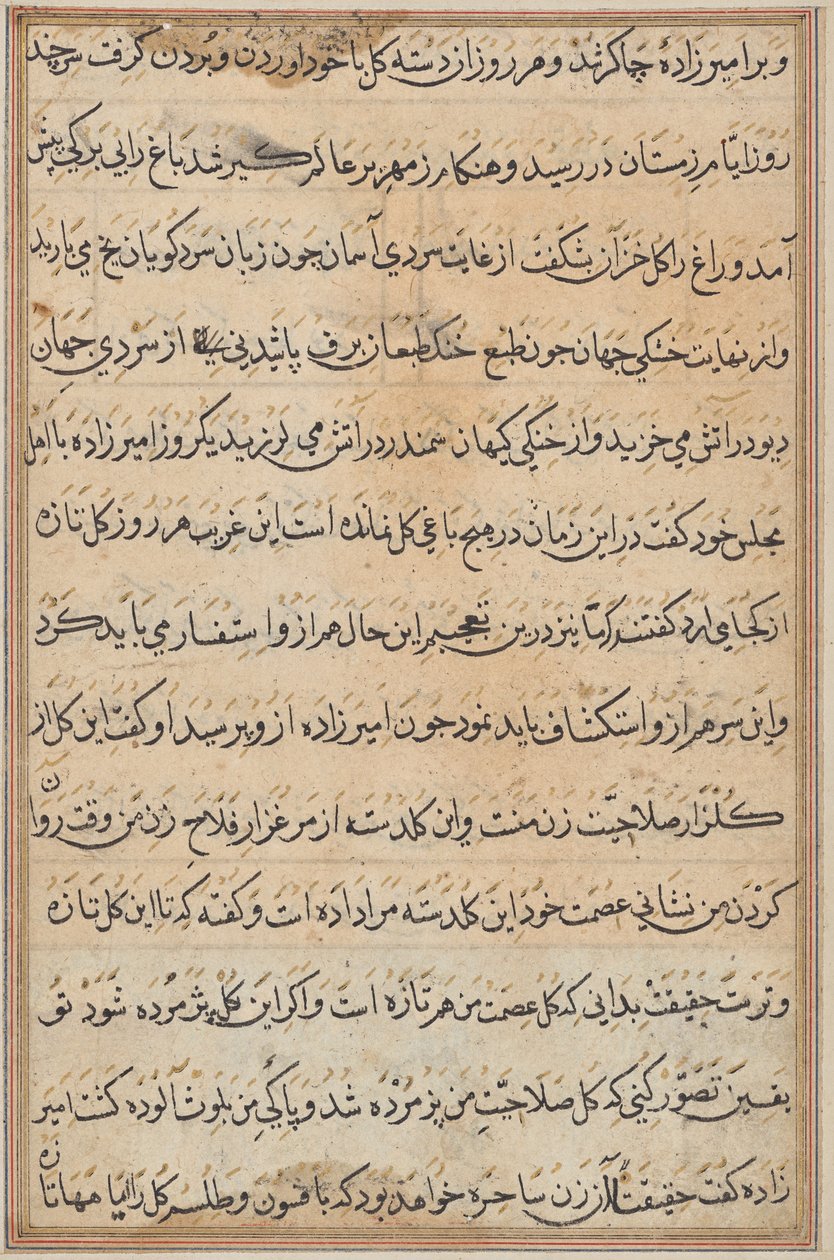 و بر امیر زادهٔ چاکر شد و هر روز ان دسته کل با خود اوردن و بُردن کرفت سر چند
روز ایّام زمستان در رسید و هنکام زمهریر عالم کیر شد باغ را بی برکی پیش
آمد و راغ را کل خزان بشکفت از غایت سردي آسمان چون زبان سرد کویان یخ می بارید
و از نهایت خنکي جهان جون طبع خنک طبعان برف پاشیدنی از سردي جهان
دیو در اتش می خزید و از خنکي کیهان سمندر در اتش می لرزید یکروز امیر زاده با اهل
مجلس خود کفت در این زمان در هیچ باغی کل نمانده است این غریب هر روز کل تازه
از کجا می ارد کفتند که ما نیز درین تعجبیم این حال هم از و استفسار می باید کرد
و این سر هم از و استکشاف باید نمود جون امیر زاده از و پرسید او کفت این کل از
کلزار صلاحیّت زن منست و این کلدسته از مرغزار فلاح زن من وقت روان
کردن من نشانی عصمت خود این کلدسته مرا داده است و کفته که تا این کل تازه
و ترست حقیقت بدانی که کل عصمت من هم تازه است و اکر این کل پژمُرده شود تو
یقین تصوّر کنی که کل صلاحیّت من پژمرده شد و پاکی من بلوث الوده کشت امیر
زاده کفت حقیقت آن زن ساحره خواهد بود که بافسون و طلسم کل را میا مهاتازه